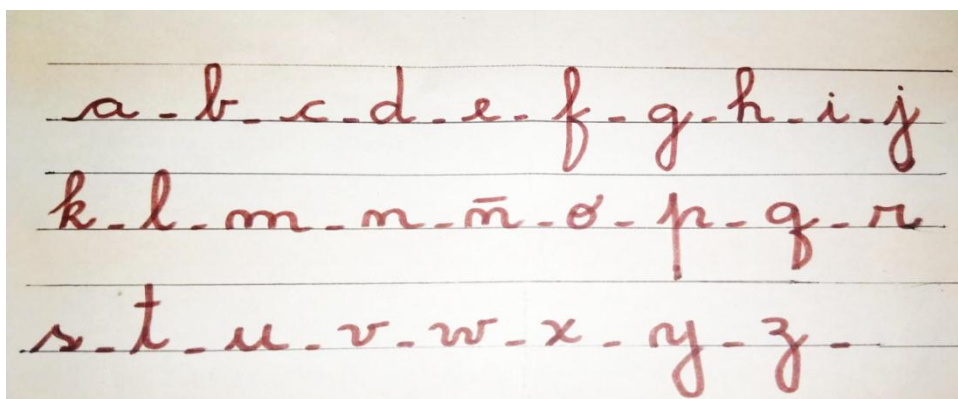 a - b - c - d - e - f - g - h - i - j
k - l - m - n - ñ - o - p - q - r
s - t - u - v - w - x - y - z -